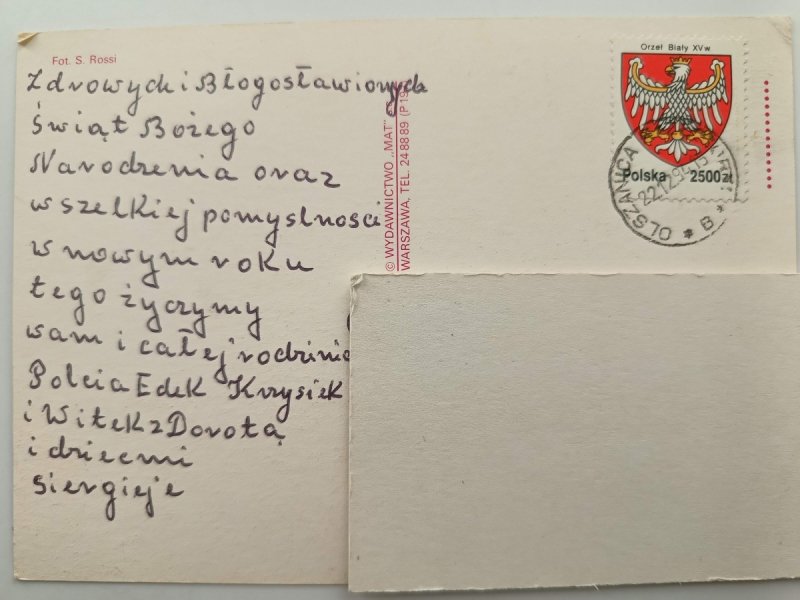 Fot. S. Rossi
Zdrowych i Błogosławionych
Świąt Bożego
Narodzenia oraz
wszelkiej pomyslnosci
w nowym roku
tego życzymy
wam i całej rodzinie
Polcia Edek Krzysiek
i Witek z Dorotą
i dziecmi
Siergieje
© WYDAWNICTWO „MAT”
WARSZAWA, TEL. 24 88 89
Orzeł Biały XV w
Polska 2500zł
OLSZANICA
22.12.94
B